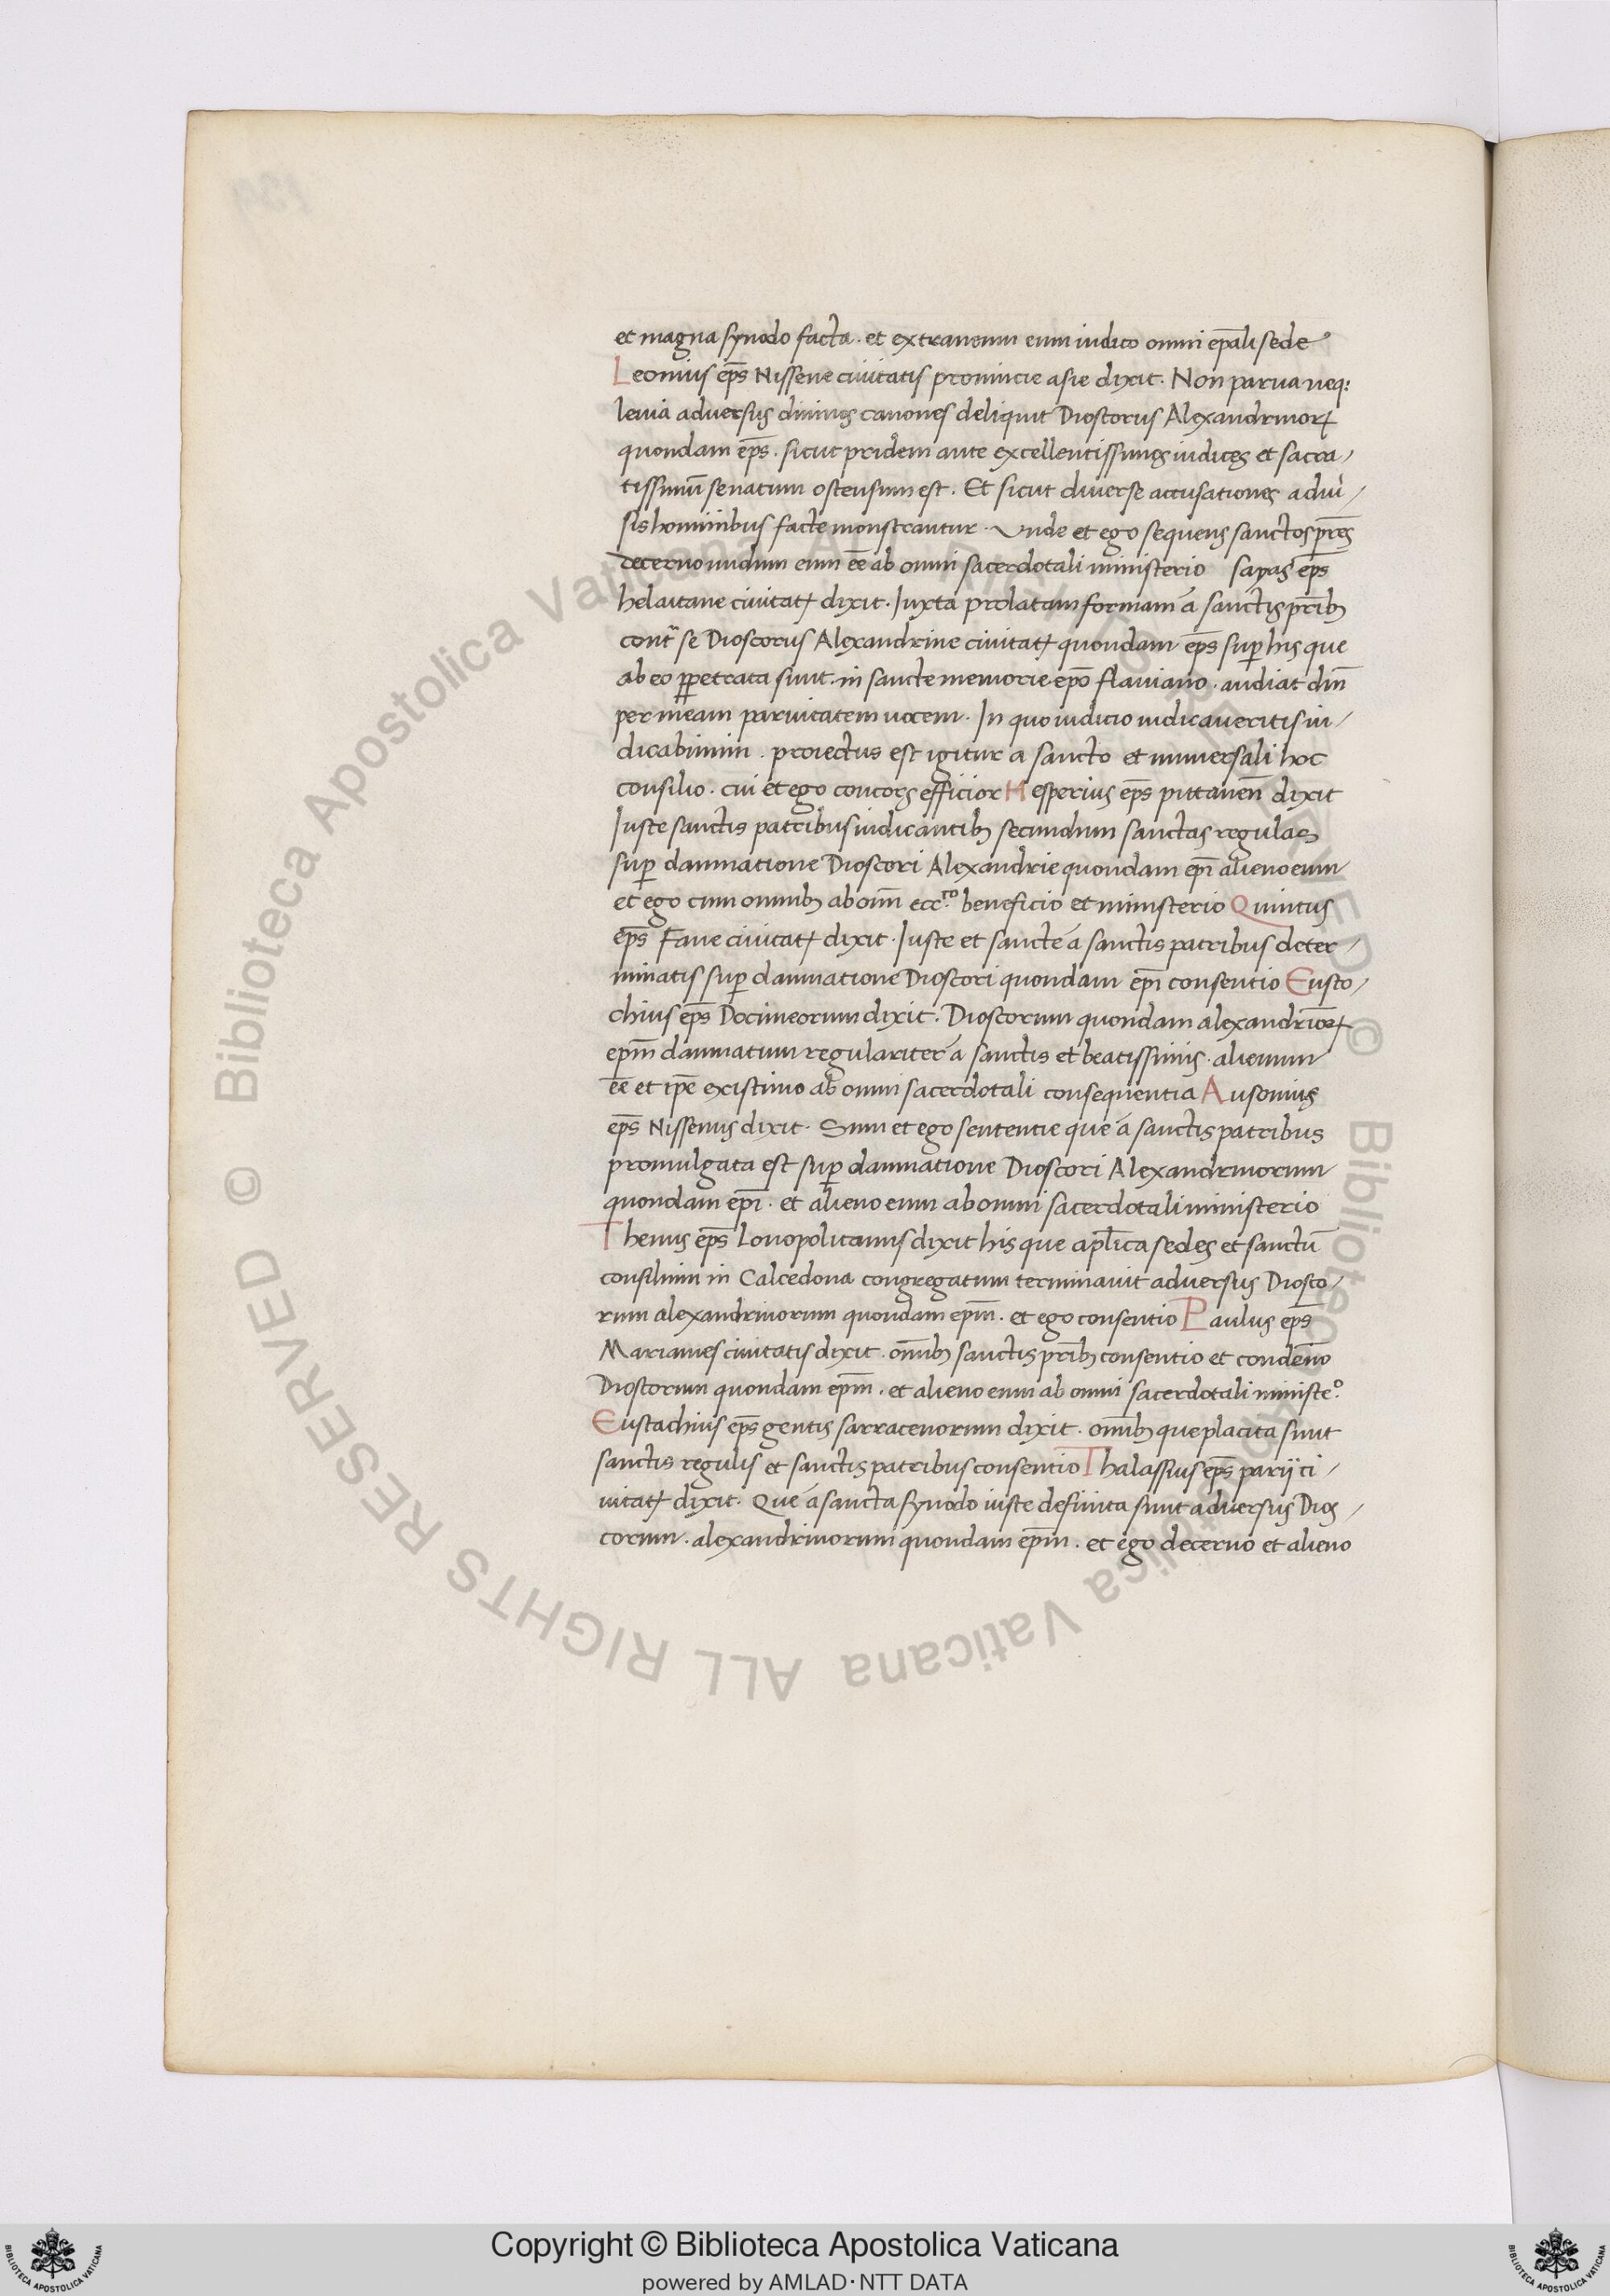 et magna synodo facta. et extraneum eum iudico omni ep̄ali sede
Leonius ep̄s Nissene ciuitatis prouincie asie dixit. Non parua neq;
leuia aduersus diuinos canones deliquit Dioscorus Alexandrinoꝝ
quondam ep̄s. sicut pridem ante excellentissimos iudices et sacra/
tissimū senatum ostensum est. Et sicut diuerse accusationes a diu̾/
sis hominibus facte monstrantur. Vnde et ego sequens sanctos pr̄es
decerno nudum eum ēe ab omni sacerdotali ministerio Sapas ep̄s
helaitane ciuitatꝭ dixit. Iuxta prolatam formam á sanctis pr̄ibꝫ
cont̃ se Dioscorus Alexandrine ciuitatꝭ quondam ep̄s suꝑ his que
ab eo ꝑpetrata sunt. in sancte memorie ep̄o flauiano. audiat dūm
per meam paruitatem uocem. In quo iudicio iudicaueritis iu/
dicabimini. proiectus est igitur a sancto et uniuersali hoc
consilio. cui et ego concors efficior Hesperius ep̄s pittanen̄ dixit
Iuste sanctis patribus iudicantibꝫ secundum sanctas regulas
suꝑ damnatione Dioscori Alexandrie quondam ep̄i alieno eum
et ego cum omnibꝫ ab om̄i ecc.ᶜᵒ beneficio et ministerio Quintus
ep̄s Fane ciuitatꝭ dixit. Iuste et sancte á sanctis patribus deter/
minatis suꝑ damnatione Dioscori quondam ep̄i consentio Eusto/
chius ep̄s Docimeorum dixit. Dioscorum quondam alexandrīoꝝ
ep̄m damnatum regulariter á sanctis et beatissimis. alienum
ēe et ip̄e existimo ab omni sacerdotali consequentia Ausonius
ep̄s Nissenus dixit. Sum et ego sententie que á sanctis patribus
promulgata est suꝑ damnatione Dioscori Alexandrinorum
quondam ep̄i. et alieno eum ab omni sacerdotali ministerio
Thenus ep̄s Lonopolitanus dixit his que ap̄lica sedes et sanctū
consilium in Calcedona congregatum terminauit aduersus Diosco/
rum alexandrinorum quondam ep̄m. et ego consentio Paulus ep̄s
Marianes ciuitatis dixit. om̄ibꝫ sanctis pr̄ibꝫ consentio et condēno
Dioscorum quondam ep̄m. et alieno eum ab omni sacerdotali ministe.º
Eustachius ep̄s gentis sarracenorum dixit. om̄ibꝫ que placita sunt
sanctis regulis et sanctis patribus consentio Thalassius ep̄s parij ci/
uitatꝭ dixit. Que á sancta synodo iuste definita sunt aduersus Dios/
corum. alexandrinorum quondam ep̄m. et ego decerno et alieno
© Biblioteca Apostolica Vaticana ALL RIGHTS RESERVED © Biblioteca Apostolica Vaticana ALL RIGHTS RESERVED
Copyright © Biblioteca Apostolica Vaticana
powered by AMLAD·NTT DATA
BIBLIOTECA APOSTOLICA VATICANA
BIBLIOTECA APOSTOLICA VATICANA